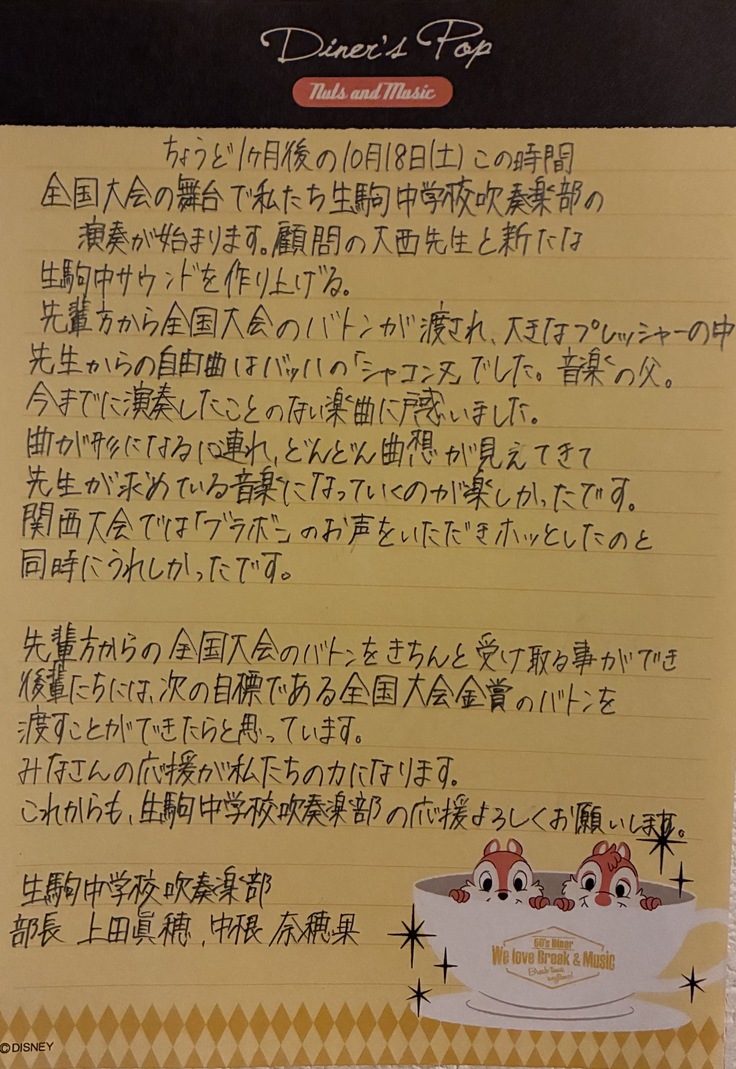 Diner's Pop
Nuts and Music
ちょうど1ヶ月後の10月18日(土)この時間
全国大会の舞台で私たち生駒中学校吹奏楽部の
演奏が始まります。顧問の大西先生と新たな
生駒中サウンドを作り上げる。
先輩方から全国大会のバトンが渡され、大きなプレッシャーの中
先生からの自由曲はバッハの「シャコンヌ」でした。音楽の父。
今までに演奏したことのない楽曲に戸惑いました。
曲が形になるに連れ、どんどん曲想が見えてきて
先生が求めている音楽になっていくのが楽しかったです。
関西大会では「ブラボー」のお声をいただきホッとしたのと
同時にうれしかったです。
先輩方からの全国大会のバトンをきちんと受け取る事ができ
後輩たちには、次の目標である全国大会金賞のバトンを
渡すことができたらと思っています。
みなさんの応援が私たちの力になります。
これからも、生駒中学校吹奏楽部の応援よろしくお願いします。
生駒中学校吹奏楽部
部長 上田眞穂、中根 奈穂果
60's Diner
We love Break & Music
Break Time
©DISNEY